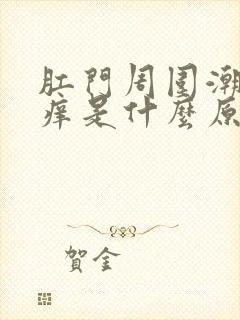 肛門周围潮
痒是什麼原
賀金